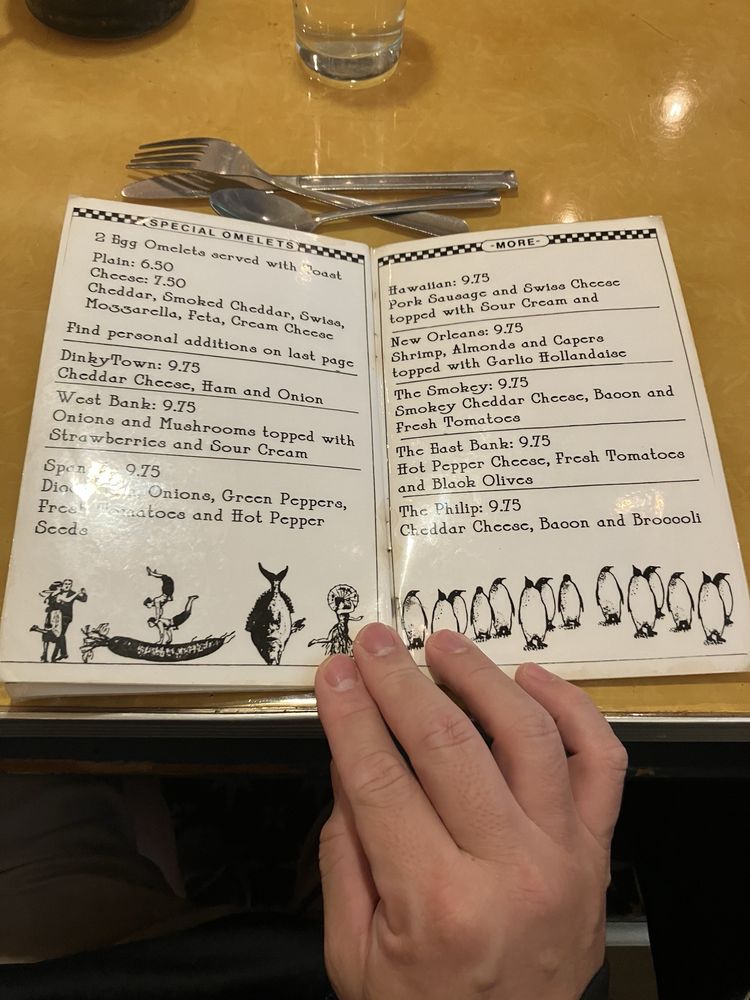 SPECIAL OMELETS
2 Egg Omelets served with Toast
Plain: 6.50
Cheese: 7.50
Cheddar, Smoked Cheddar, Swiss,
Mozzarella, Feta, Cream Cheese
Find personal additions on last page
DinkyTown: 9.75
Cheddar Cheese, Ham and Onion
West Bank: 9.75
Onions and Mushrooms topped with
Strawberries and Sour Cream
9.75
Onions, Green Peppers,
Fresh Tomatoes and Hot Pepper
Seeds
-MORE-
Hawaiian: 9.75
Pork Sausage and Swiss Cheese
topped with Sour Cream and
New Orleans: 9.75
Shrimp, Almonds and Capers
topped with Garlic Hollandaise
The Smokey: 9.75
Smokey Cheddar Cheese, Bacon and
Fresh Tomatoes
The East Bank: 9.75
Hot Pepper Cheese, Fresh Tomatoes
and Black Olives
The Philip: 9.75
Cheddar Cheese, Bacon and Broccoli